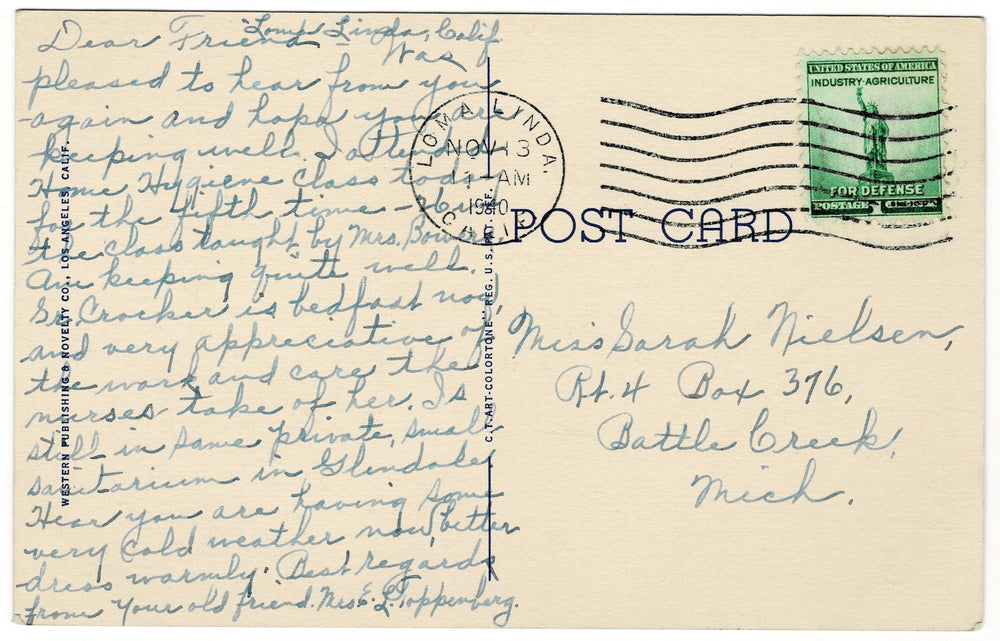 Loma Linda, Calif.
Dear Friend - Was
pleased to hear from you
again and hope you are
keeping well. I attend
Home Hygiene class today
for the fifth time -
the class taught by Mrs. Bowers.
Am keeping quite well.
Sr. Crocker is bedfast now,
and very appreciative of
the work and care the
nurses take of her. Is
still in same private, small
sanitarium in Glendale.
Hear you are having some
very cold weather now, better
dress warmly. Best regards
from your old friend. Mrs. E. L. Toppenberg.
WESTERN PUBLISHING & NOVELTY CO., LOS ANGELES, CALIF.
C. T. ART-COLORTONE REG. U. S. PAT. OFF.
LOMA LINDA,
NOV 13
11 - AM
1940
CALIF.
UNITED STATES OF AMERICA
INDUSTRY-AGRICULTURE
FOR DEFENSE
POSTAGE
POST CARD
Miss Sarah Nielsen,
Rt. 4 Box 376,
Battle Creek,
Mich.